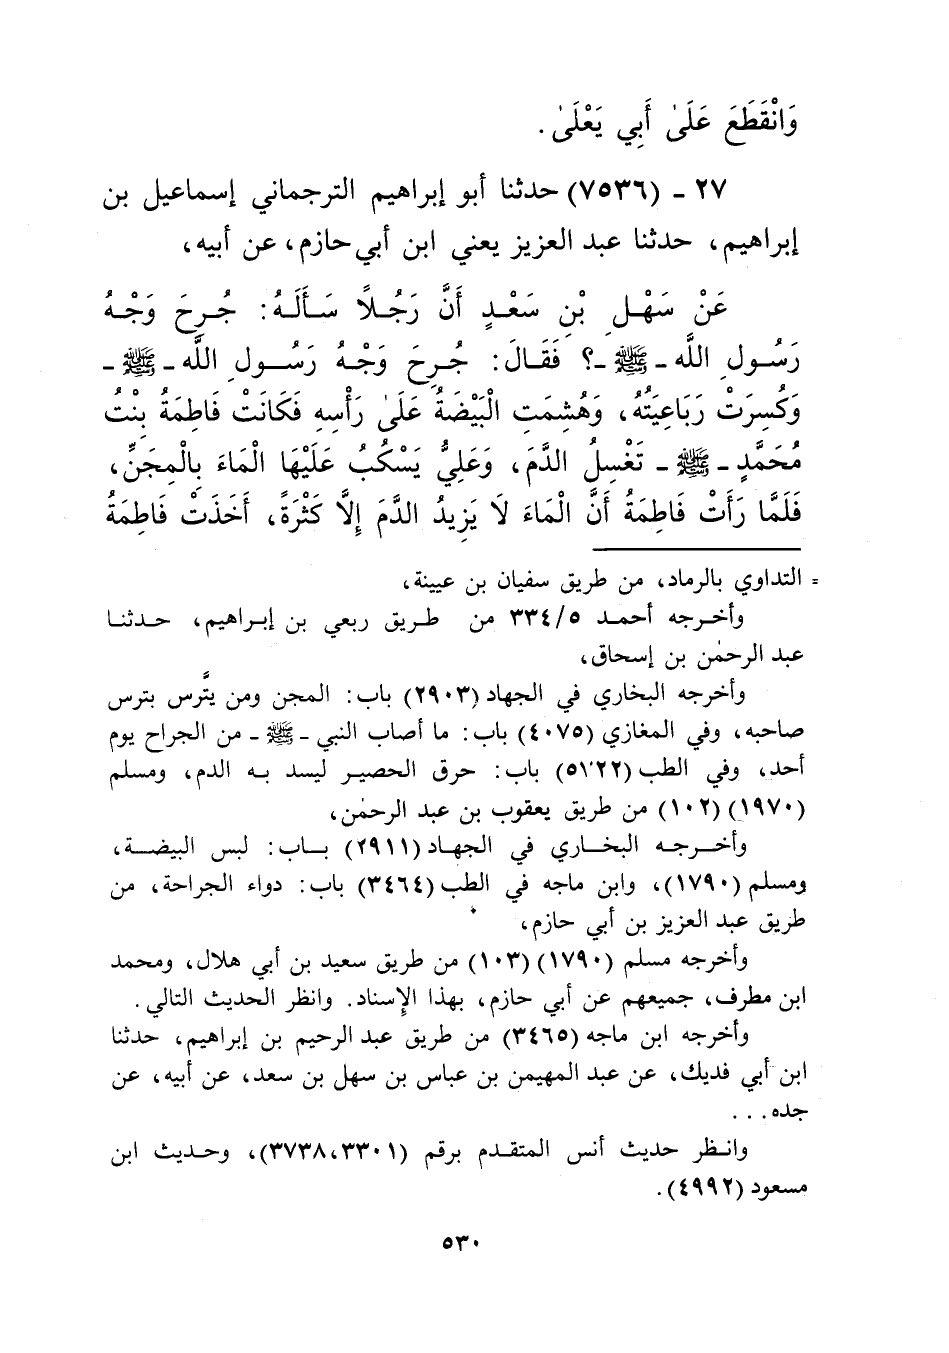 وَانْقَطَعَ عَلَىٰ أَبِي يَعْلَىٰ.
٢٧ - (٧٥٣٦) حدثنا أبو إبراهيم الترجماني إسماعيل بن
إبراهيم، حدثنا عبد العزيز يعني ابن أبي حازم، عن أبيه،
عَنْ سَهْلِ بْنِ سَعْدٍ أَنَّ رَجُلاً سَأَلَهُ: جُرِحَ وَجْهُ
رَسُولِ اللَّهِ - ﷺ -؟ فَقَالَ: جُرِحَ وَجْهُ رَسُولِ اللَّهِ - ﷺ -
وَكُسِرَتْ رَبَاعِيَتُهُ، وَهُشِمَتِ الْبَيْضَةُ عَلَىٰ رَأْسِهِ فَكَانَتْ فَاطِمَةُ بِنْتُ
مُحَمَّدٍ - ﷺ - تَغْسِلُ الدَّمَ، وَعَلِيٌّ يَسْكُبُ عَلَيْهَا الْمَاءَ بِالْمِجَنِّ،
فَلَمَّا رَأَتْ فَاطِمَةُ أَنَّ الْمَاءَ لَا يَزِيدُ الدَّمَ إِلَّا كَثْرَةً، أَخَذَتْ فَاطِمَةُ
= التداوي بالرماد، من طريق سفيان بن عيينة،
وأخرجه أحمد ٣٣٤/٥ من طريق ربعي بن إبراهيم، حدثنا
عبد الرحمٰن بن إسحاق،
وأخرجه البخاري في الجهاد (٢٩٠٣) باب: المجن ومن يتَّرس بترس
صاحبه، وفي المغازي (٤٠٧٥) باب: ما أصاب النبي - ﷺ - من الجراح يوم
أحد، وفي الطب (٥٧٢٢) باب: حرق الحصير ليسد به الدم، ومسلم
(١٩٧٠) (١٠٢) من طريق يعقوب بن عبد الرحمٰن،
وأخرجه البخاري في الجهاد (٢٩١١) باب: لبس البيضة،
ومسلم (١٧٩٠)، وابن ماجه في الطب (٣٤٦٤) باب: دواء الجراحة، من
طريق عبد العزيز بن أبي حازم،
وأخرجه مسلم (١٧٩٠) (١٠٣) من طريق سعيد بن أبي هلال، ومحمد
ابن مطرف، جميعهم عن أبي حازم، بهذا الإسناد. وانظر الحديث التالي.
وأخرجه ابن ماجه (٣٤٦٥) من طريق عبد الرحيم بن إبراهيم، حدثنا
ابن أبي فديك، عن عبد المهيمن بن عباس بن سهل بن سعد، عن أبيه، عن
جده...
وانظر حديث أنس المتقدم برقم (٣٣٠١، ٣٧٣٨)، وحديث ابن
مسعود (٤٩٩٢).
٥٣٠